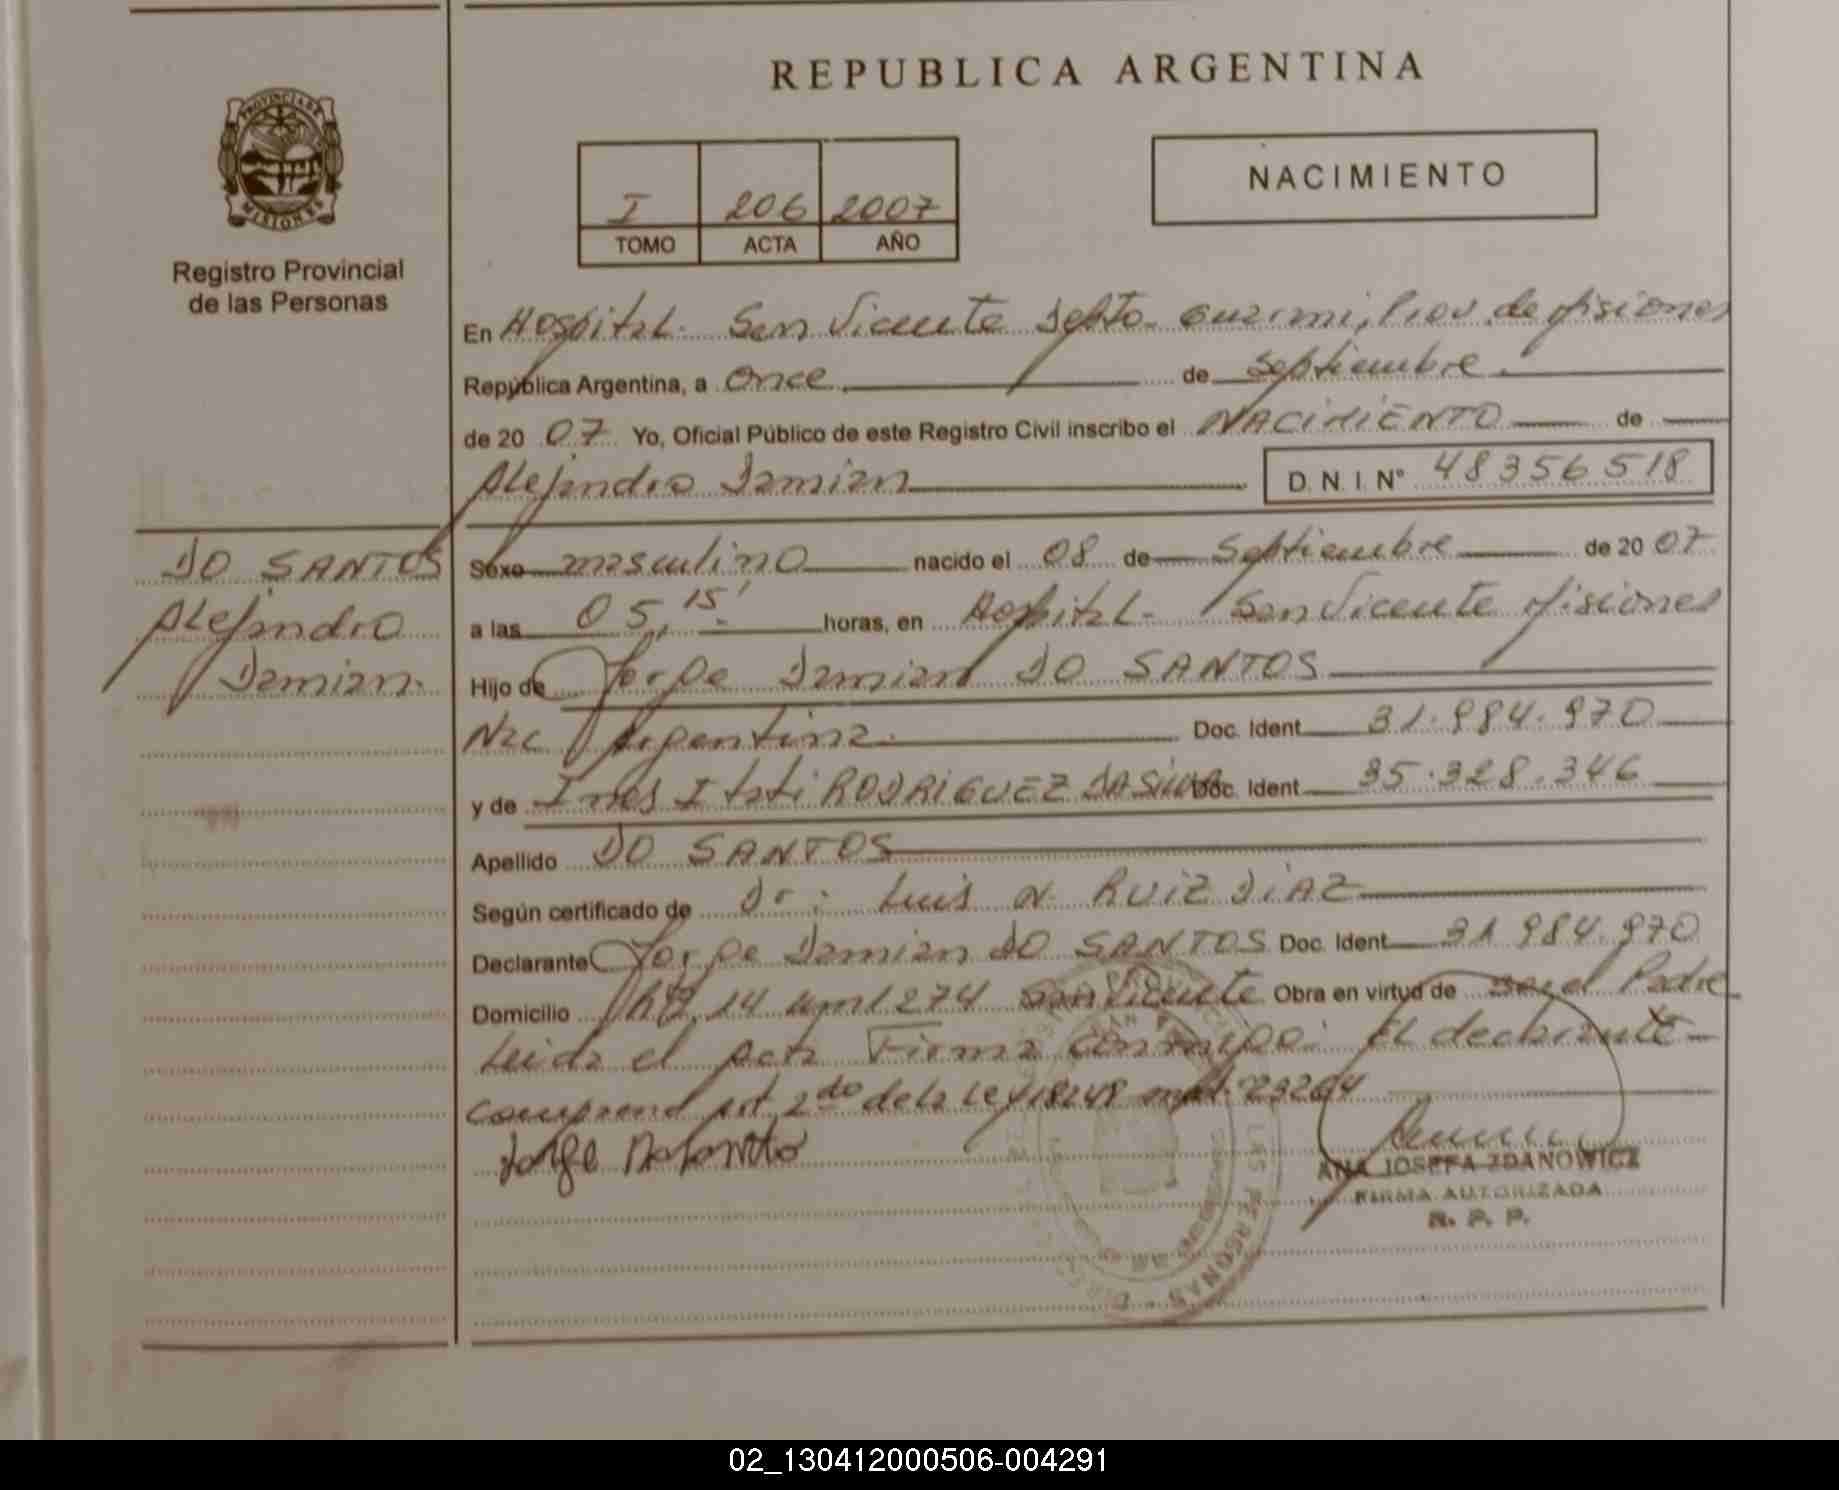 REPUBLICA ARGENTINA
PROVINCIA DE
MISIONES
Registro Provincial
de las Personas
I 206 2007
TOMO ACTA AÑO
NACIMIENTO
En Hospital San Vicente Dpto Guarani, Prov. de Misiones
República Argentina, a Once de Septiembre
de 20 07 Yo, Oficial Público de este Registro Civil inscribo el NACIMIENTO de
Alejandro Damian D. N. I. N° 48356518
DO SANTOS
Alejandro
Damian.
Sexo masculino nacido el 08 de Septiembre de 20 07
a las 05,15' horas, en Hospital San Vicente Misiones
Hijo de Jorge Damian DO SANTOS
Nac Argentina. Doc. Ident 31.984.970
y de Ines Itati RODRIGUEZ DASILVA Doc. Ident 35.328.346
Apellido DO SANTOS
Según certificado de Dr: Luis N. RUIZ DIAZ
Declarante Jorge Damian DO SANTOS Doc. Ident 31 984.970
Domicilio 14 km 1274 San Vicente Obra en virtud de ser el Padre
Leida el acta Firma conmigo: el declarante
comprend art 2do de la Ley 18248 23264
Jorge
ANA JOSEFA ZDANOWICZ
FIRMA AUTORIZADA
R. P. P.
LAS PERSONAS
02_130412000506-004291